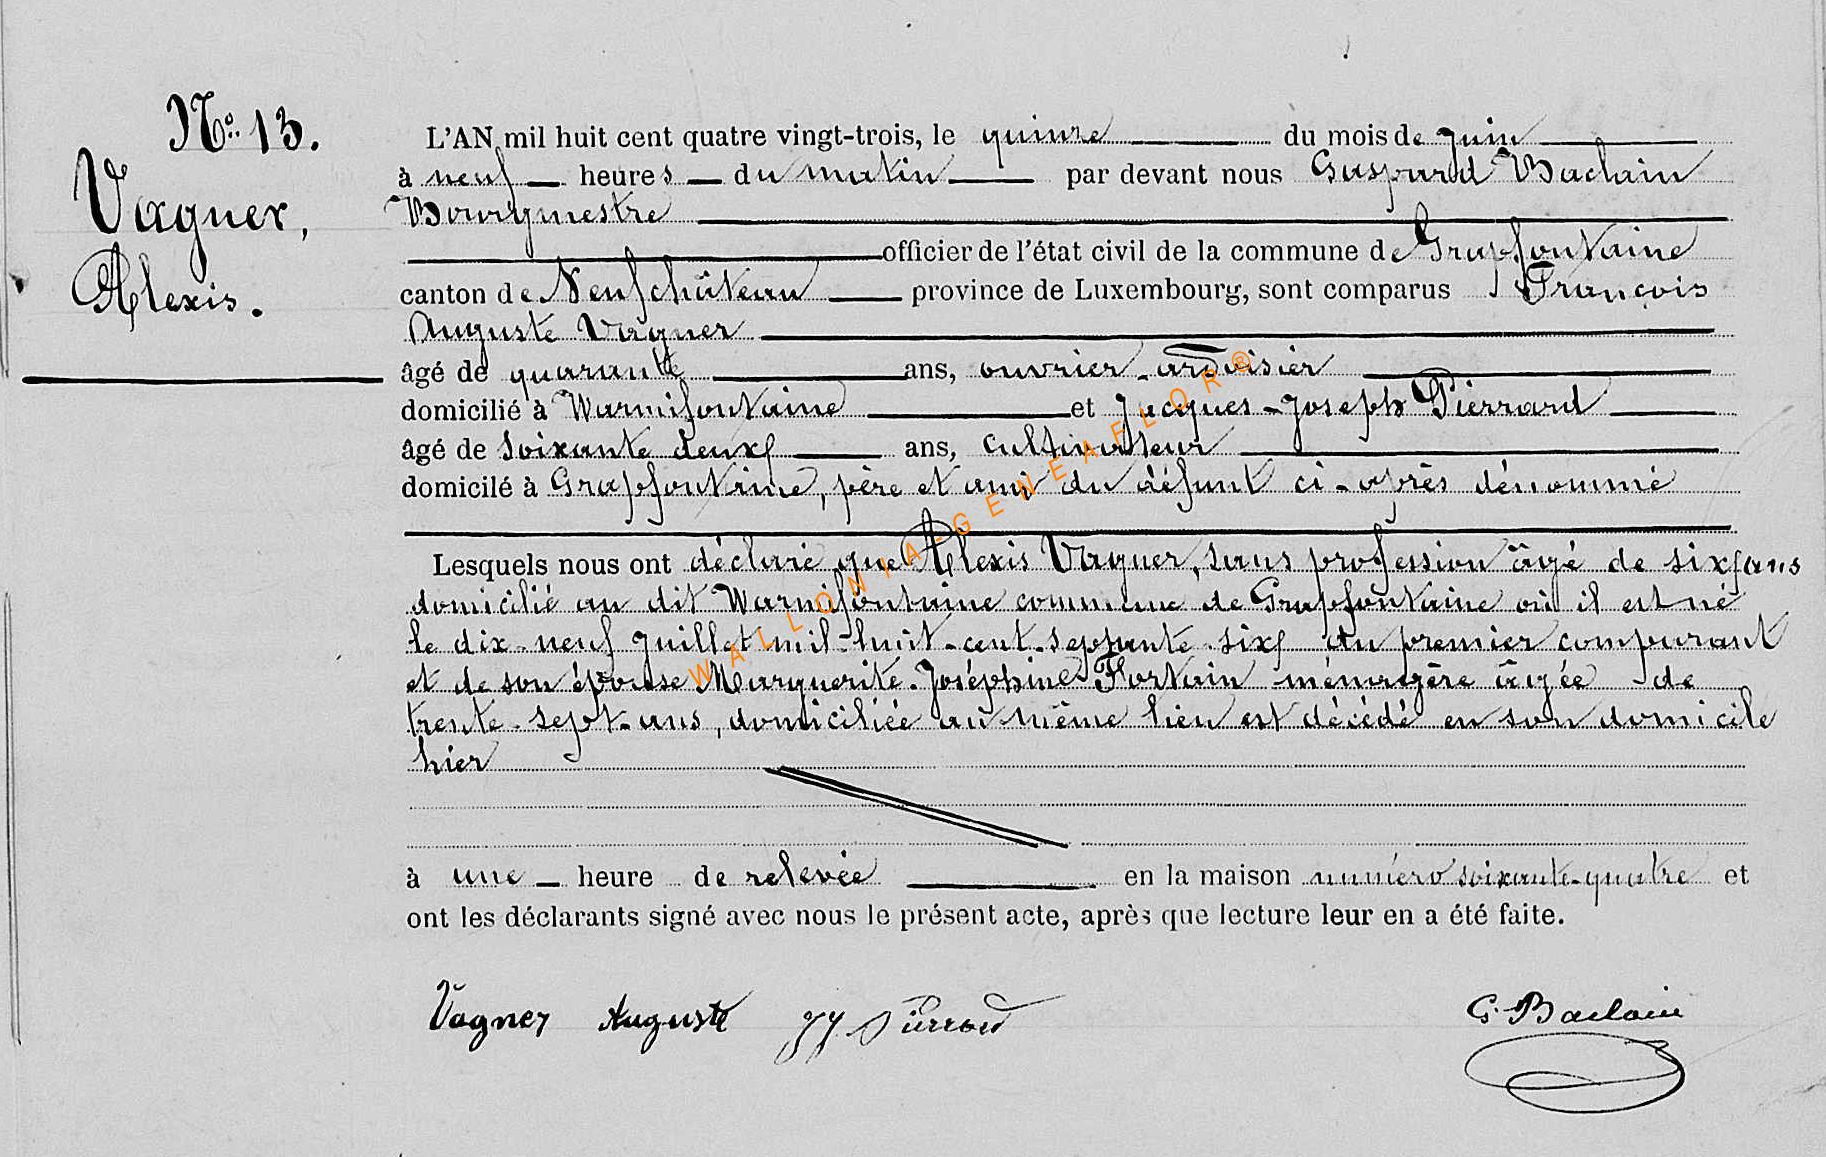 No. 13.
Vagner,
Alexis.
L'AN mil huit cent quatre vingt-trois, le quinze du mois de juin
à neuf heures du matin par devant nous Gaspard Baclain
Bourgmestre
officier de l'état civil de la commune de Grapfontaine
canton de Neufchâteau province de Luxembourg, sont comparus François
Auguste Vagner
âgé de quarante ans, ouvrier-ardoisier
domicilié à Warmifontaine et Jacques-Joseph Pierrard
âgé de soixante deux ans, cultivateur
domicilé à Grapfontaine, père et ami du défunt ci-après dénommé
Lesquels nous ont déclaré que Alexis Vagner, sans profession âgé de six ans
domicilié au dit Warmifontaine commune de Grapfontaine où il est né
le dix-neuf juillet mil-huit-cent-septante-six du premier comparant
et de son épouse Marguerite-Joséphine Fortain ménagère âgée de
trente-sept-ans, domiciliée au même lieu est décédé en son domicile
hier
à une heure de relevée en la maison numéro soixante-quatre et
ont les déclarants signé avec nous le présent acte, après que lecture leur en a été faite.
Vagner Auguste JJ. Pierrard G. Baclain
WALLONIA-GENEAFLOR®